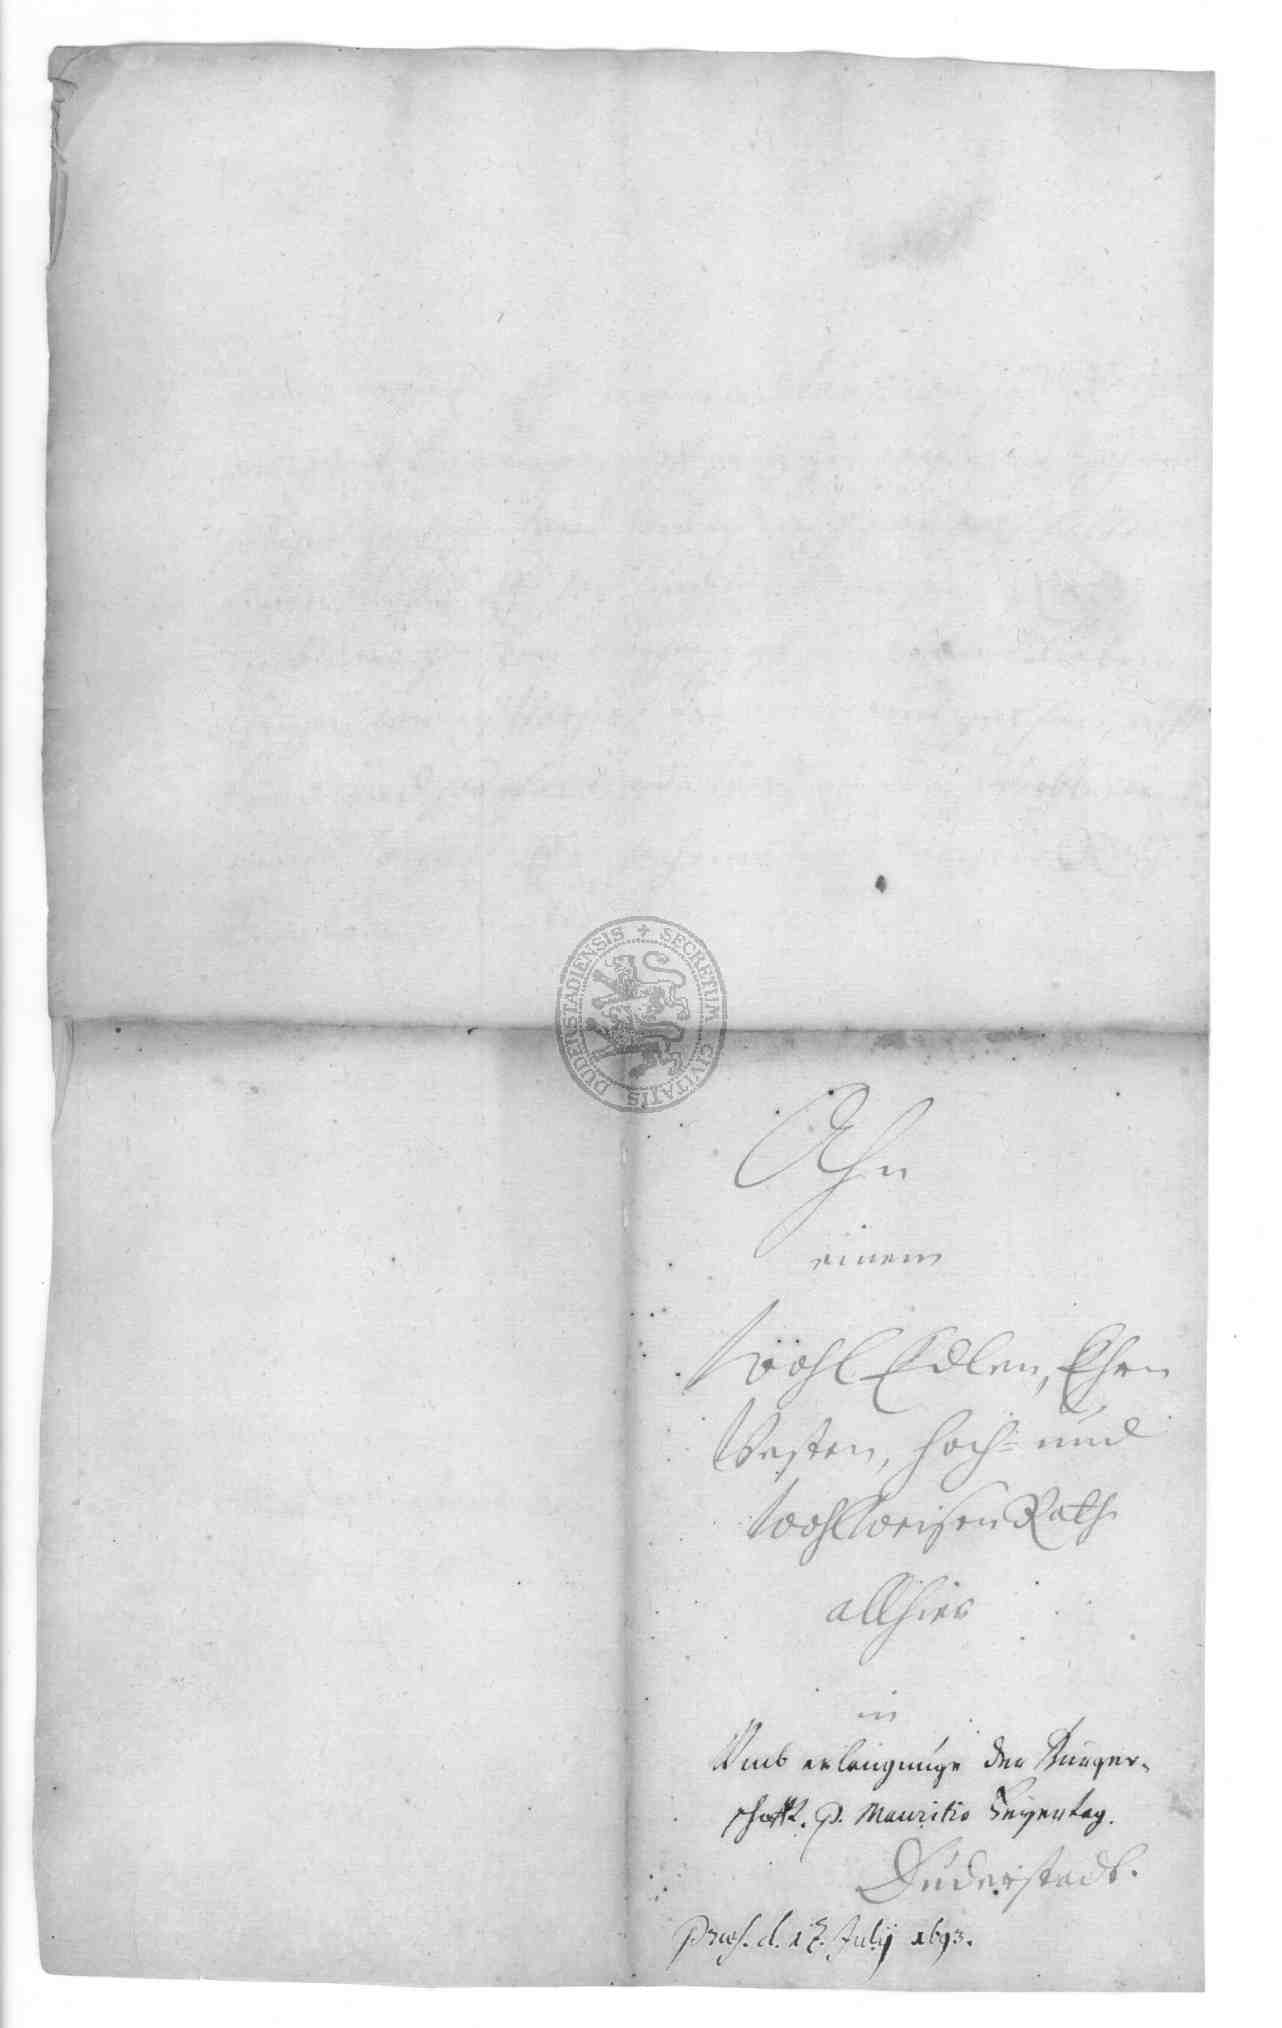 SECRETUM CIVITATIS DUDERSTADIENSIS
Ahn
einem
WohlEdlen, Ehrn
Vesten, hoch- und
WohlWeisen Rath
allhier
in
Vmb erlangunge der Bürger-
schafft. p. Mauritio Feyertag.
Duderstadt.
Præs. d. 17. July 1693.